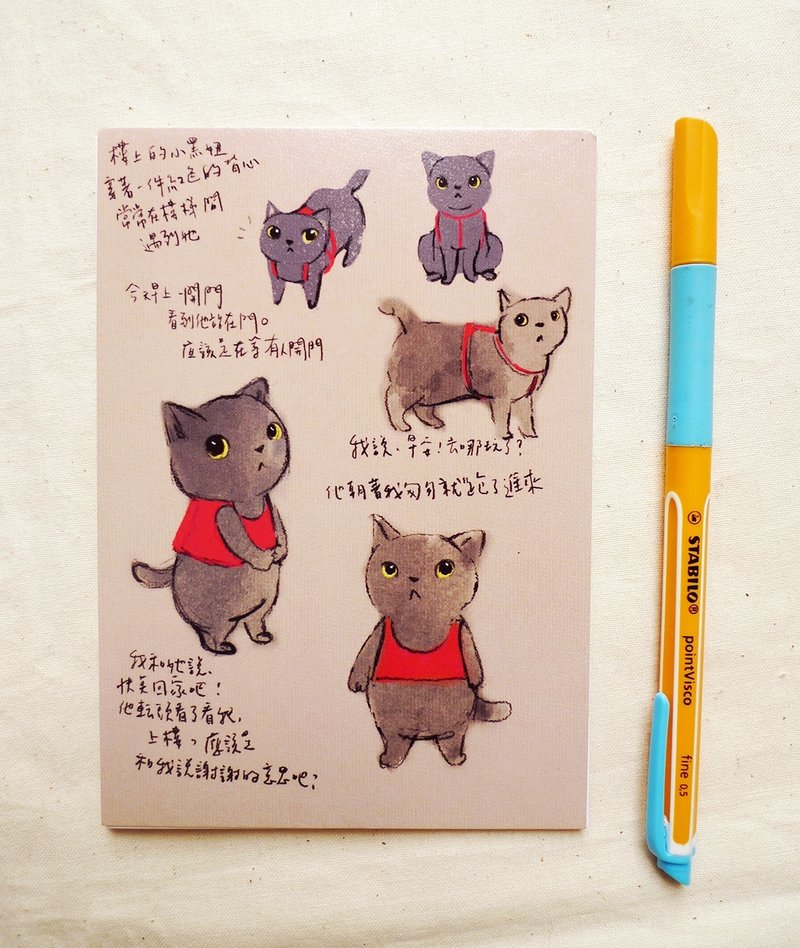 樓上的小黑妞
穿著一件紅色的背心
常常在樓梯間
遇到牠
今天早上一開門
看到他許在門。
應該是在等有人開門
我說、早安!去哪玩了?
他朝著我匆匆就跑了進來
我和他說、
快點回家吧!
他轉頭看了看我,
上樓,應該是
和我說謝謝的意思吧?
STABILO®
pointVisco
fine 0,5